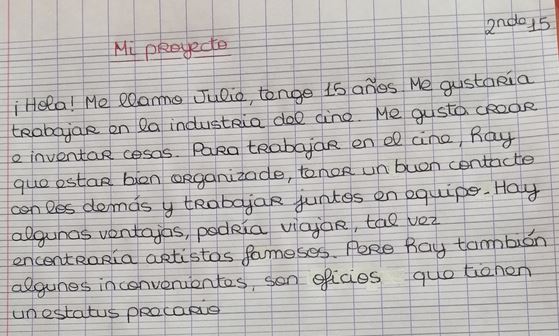 2ndo 15
Mi proyecto
¡Hola! Me llamo Julio, tengo 15 años. Me gustaría
trabajar en la industria del cine. Me gusta crear
e inventar cosas. Para trabajar en el cine, hay
que estar bien organizado, tener un buen contacto
con los demás y trabajar juntos en equipo. Hay
algunas ventajas, podría viajar, tal vez
encontraría artistas famosos. Pero hay también
algunos inconvenientes, son oficios que tienen
un estatus precario